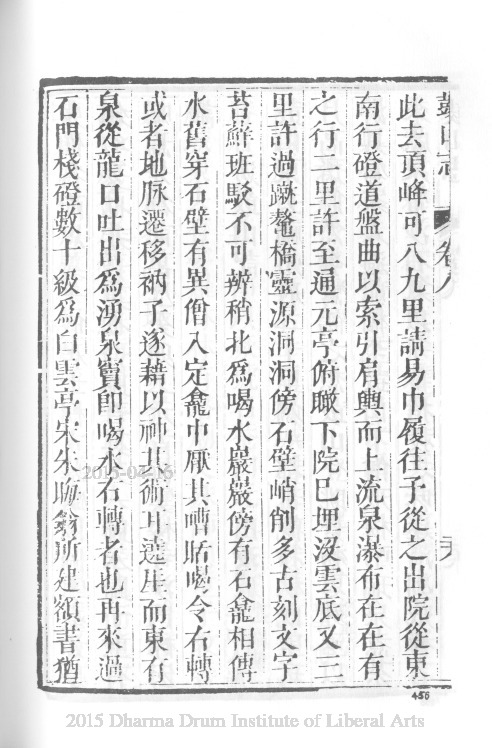 鼓山志 卷八 六
此去頂峰可八九里請易巾履往予從之出院從東
南行磴道盤曲以索引肩輿而上流泉瀑布在在有
之行二里許至通元亭俯瞰下院已埋没雲底又三
里許過蹴鼇橋靈源洞洞傍石壁峭削多古刻文字
苔蘚班駁不可辨稍北爲喝水巖巖傍有石龕相傳
水舊穿石壁有異僧入定龕中厭其嘈聒喝令右轉
或者地脉遷移衲子遂藉以神其術耳遶崖而東有
泉從龍口吐出爲湧泉竇卽喝水右轉者也再來過
石門棧磴數十級爲白雲亭宋朱晦翁所建額書猶
456
2015 Dharma Drum Institute of Liberal Arts